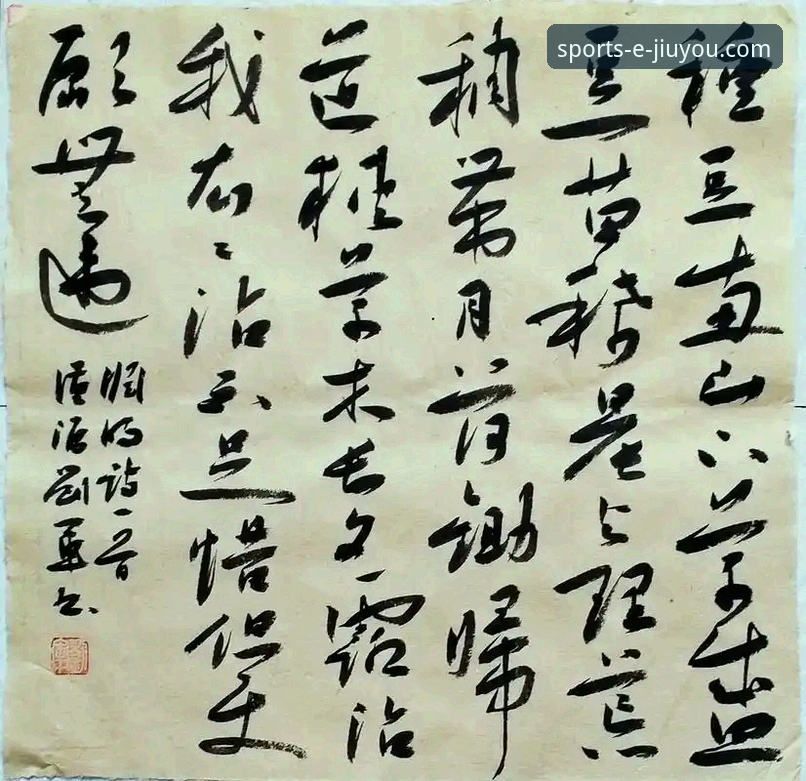 sports-e-jiuyou.com
種豆南山下草盛
豆苗稀晨興理荒
穢帶月荷鋤歸
道狹草木長夕露沾
我衣々沾不足惜但使
願無違
淵明詩一首
劉書